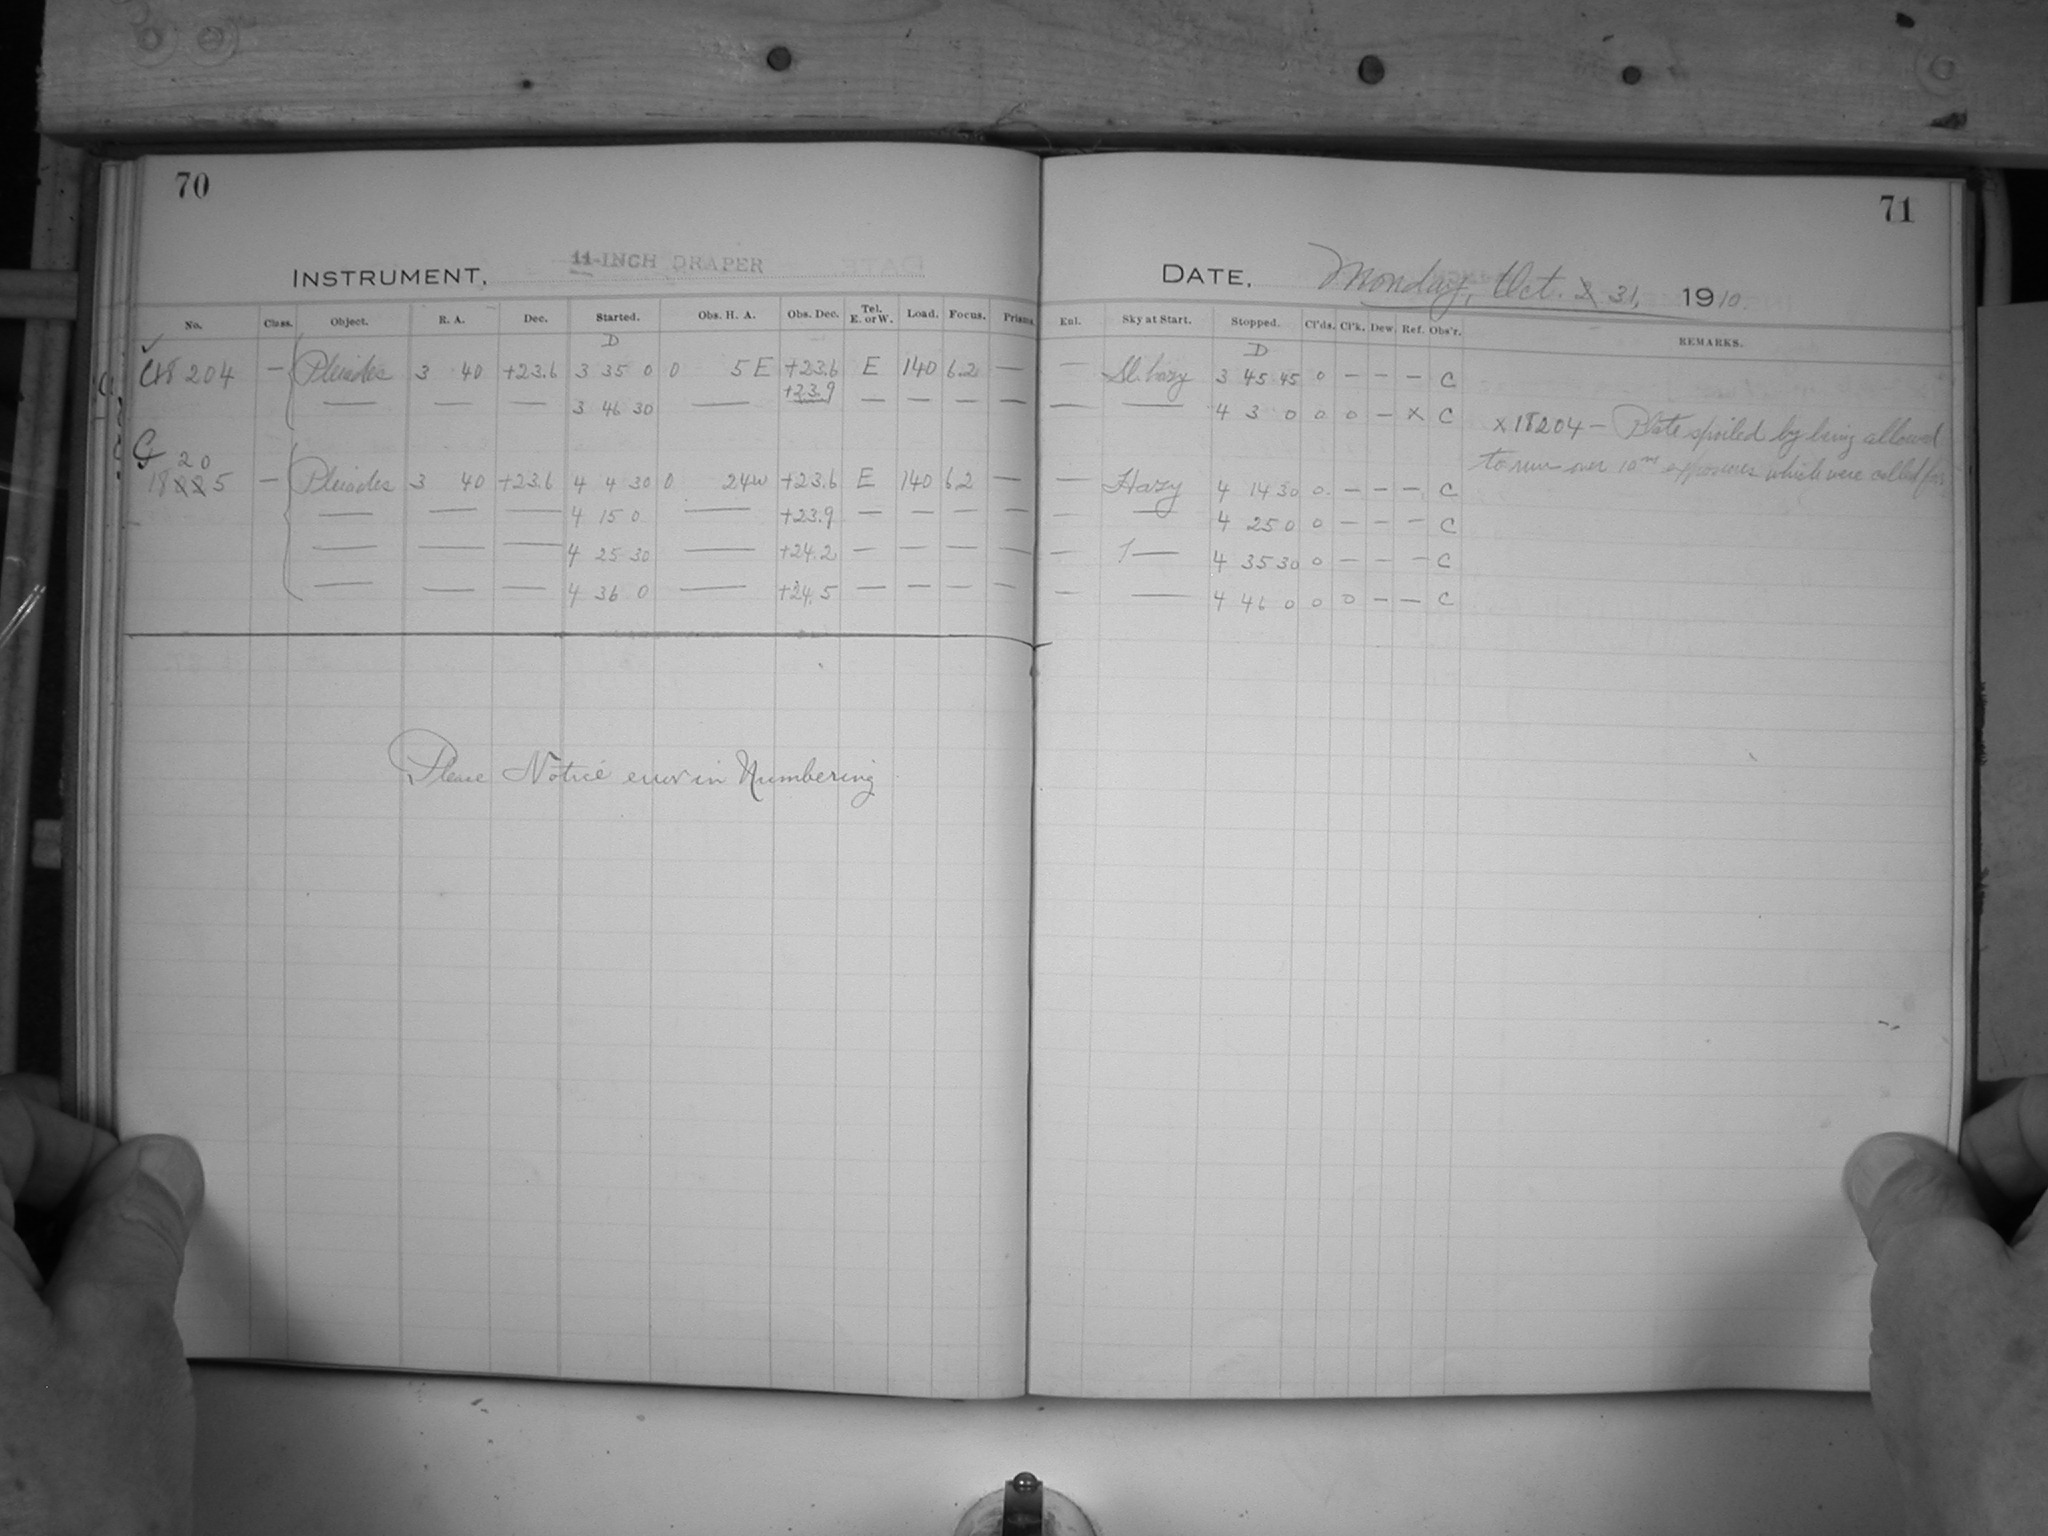 70
INSTRUMENT, 11-INCH DRAPER
No. Class. Object. R. A. Dec. Started. Obs. H. A. Obs. Dec. Tel. E. or W. Load. Focus. Prisms.
D
C 18204 — Pleiades 3 40 +23.6 3 35 0 0 5 E +23.6 E 140 6.2 —
— — — 3 46 30 — +23.9 — — — —
C 20
18225 — Pleiades 3 40 +23.6 4 4 30 0 24w +23.6 E 140 6.2 —
— — — 4 15 0 — +23.9 — — — —
— — — 4 25 30 — +24.2 — — — —
— — — 4 36 0 — +24.5 — — — —
Please Notice error in Numbering
71
DATE, Monday, Oct. 31, 1910.
Enl. Sky at Start. Stopped. Cl'ds. Cl'k. Dew. Ref. Obs'r. REMARKS.
D
— Sl. hazy 3 45 45 0 — — — C
— — 4 3 0 0 0 — x C
x 18204 — Plate spoiled by being allowed
to run over 10m exposures which were called for
— Hazy 4 14 30 0 — — — C
— — 4 25 0 0 — — — C
— — 4 35 30 0 — — — C
— — 4 46 0 0 0 — — C